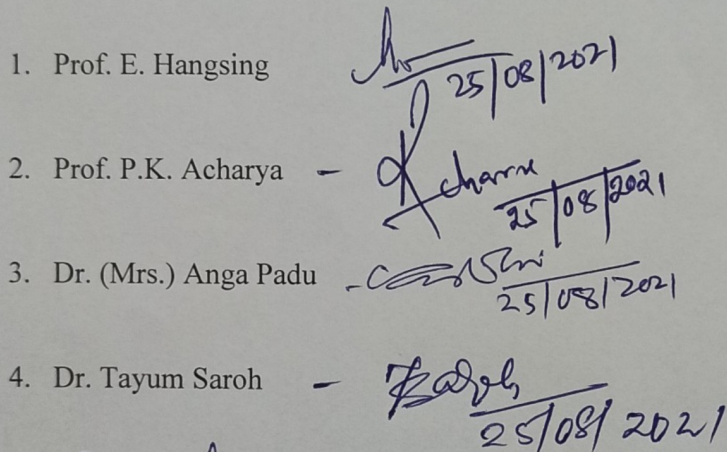 1. Prof. E. Hangsing
25/08/2021
2. Prof. P.K. Acharya -
25/08/2021
3. Dr. (Mrs.) Anga Padu -
25/08/2021
4. Dr. Tayum Saroh -
25/08/2021